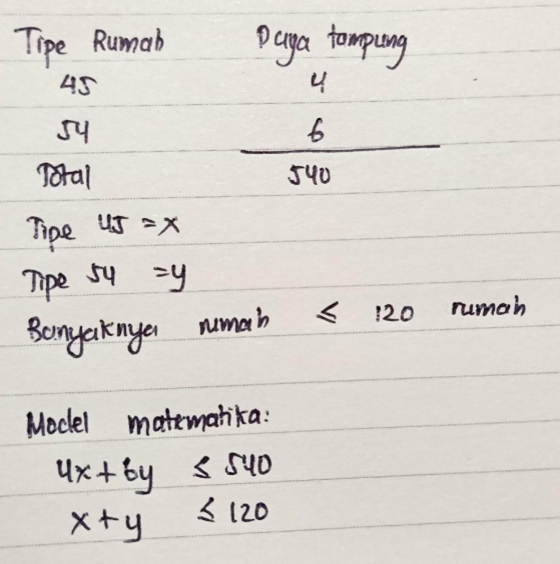 Tipe Rumah Daya tampung
45 4
54 6
Total 540
Tipe 45 = x
Tipe 54 = y
Banyaknya rumah ≤ 120 rumah
Model matematika:
4x + 6y ≤ 540
x + y ≤ 120